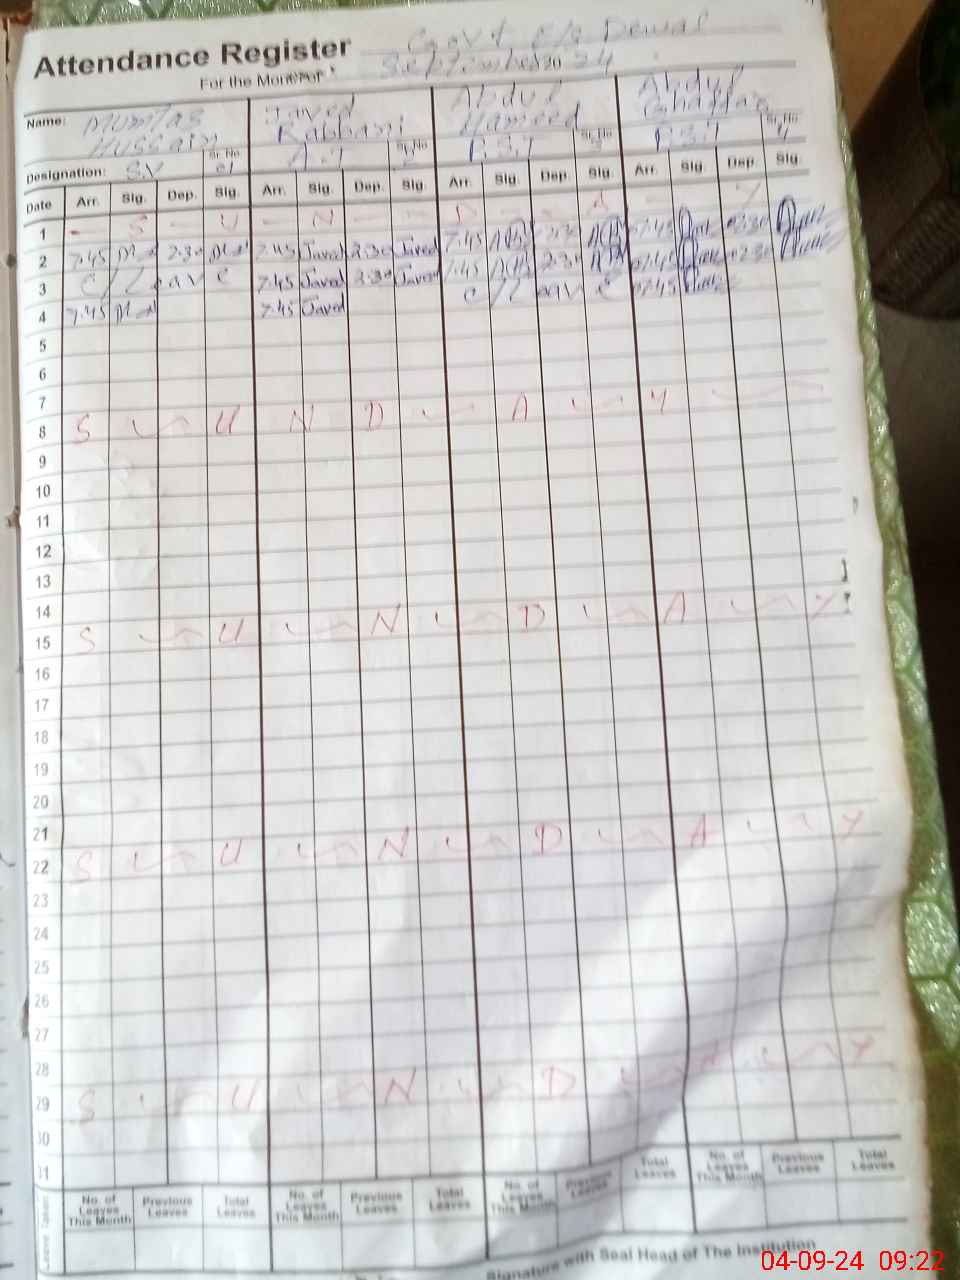 Attendance Register Govt E/S Dewal
For the Month of September 20 24
Name: Mumtaz Hussain Javed Rabbani Abdul Hameed Abdul Ghaffar
Designation: S.V Sr. No 01 A.T Sr. No 2 P.S.T Sr. No 3 P.S.T Sr. No 4
Date Arr. Sig. Dep. Sig. Arr. Sig. Dep. Sig. Arr. Sig. Dep. Sig. Arr. Sig. Dep. Sig.
1 - S - U - N - - D - - A - - Y
2 7:45 2:30 7:45 Javed 2:30 Javed 7:45 2:30 07:45 02:30
3 C/Leave 7:45 Javed 2:30 Javed 7:45 2:30 07:45 02:30
4 7:45 7:45 Javed C/Leave 07:45
5
6
7
8 S U N D A Y
9
10
11
12
13
14
15 S U N D A Y
16
17
18
19
20
21
22 S U N D A Y
23
24
25
26
27
28
29 S U N D A Y
30
31
Leave Taken No. of Leaves This Month Previous Leaves Total Leaves No. of Leaves This Month Previous Leaves Total Leaves No. of Leaves This Month Previous Leaves Total Leaves No. of Leaves This Month Previous Leaves Total Leaves
Signature with Seal Head of The Institution
04-09-24 09:22